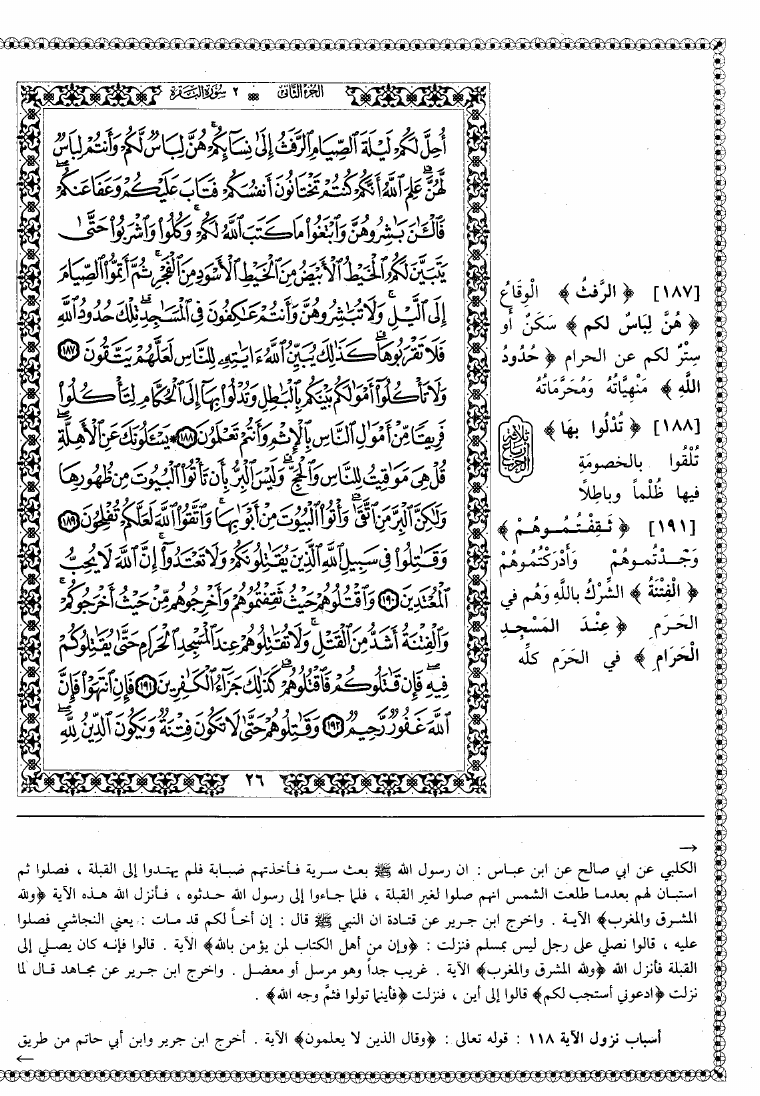 الجزء الثاني ٢ سورة البقرة
أُحِلَّ لَكُمْ لَيْلَةَ ٱلصِّيَامِ ٱلرَّفَثُ إِلَىٰ نِسَآئِكُمْ ۚ هُنَّ لِبَاسٌ لَّكُمْ وَأَنتُمْ لِبَاسٌ
لَّهُنَّ ۗ عَلِمَ ٱللَّهُ أَنَّكُمْ كُنتُمْ تَخْتَانُونَ أَنفُسَكُمْ فَتَابَ عَلَيْكُمْ وَعَفَا عَنكُمْ ۖ
فَٱلْـَٰٔنَ بَـٰشِرُوهُنَّ وَٱبْتَغُوا۟ مَا كَتَبَ ٱللَّهُ لَكُمْ ۚ وَكُلُوا۟ وَٱشْرَبُوا۟ حَتَّىٰ
يَتَبَيَّنَ لَكُمُ ٱلْخَيْطُ ٱلْأَبْيَضُ مِنَ ٱلْخَيْطِ ٱلْأَسْوَدِ مِنَ ٱلْفَجْرِ ۖ ثُمَّ أَتِمُّوا۟ ٱلصِّيَامَ
إِلَى ٱلَّيْلِ ۚ وَلَا تُبَـٰشِرُوهُنَّ وَأَنتُمْ عَـٰكِفُونَ فِى ٱلْمَسَـٰجِدِ ۗ تِلْكَ حُدُودُ ٱللَّهِ
فَلَا تَقْرَبُوهَا ۗ كَذَٰلِكَ يُبَيِّنُ ٱللَّهُ ءَايَـٰتِهِۦ لِلنَّاسِ لَعَلَّهُمْ يَتَّقُونَ ١٨٧
وَلَا تَأْكُلُوٓا۟ أَمْوَٰلَكُم بَيْنَكُم بِٱلْبَـٰطِلِ وَتُدْلُوا۟ بِهَآ إِلَى ٱلْحُكَّامِ لِتَأْكُلُوا۟
فَرِيقًا مِّنْ أَمْوَٰلِ ٱلنَّاسِ بِٱلْإِثْمِ وَأَنتُمْ تَعْلَمُونَ ١٨٨ يَسْـَٔلُونَكَ عَنِ ٱلْأَهِلَّةِ ۖ
قُلْ هِىَ مَوَٰقِيتُ لِلنَّاسِ وَٱلْحَجِّ ۗ وَلَيْسَ ٱلْبِرُّ بِأَن تَأْتُوا۟ ٱلْبُيُوتَ مِن ظُهُورِهَا
وَلَـٰكِنَّ ٱلْبِرَّ مَنِ ٱتَّقَىٰ ۗ وَأْتُوا۟ ٱلْبُيُوتَ مِنْ أَبْوَٰبِهَا ۚ وَٱتَّقُوا۟ ٱللَّهَ لَعَلَّكُمْ تُفْلِحُونَ ١٨٩
وَقَـٰتِلُوا۟ فِى سَبِيلِ ٱللَّهِ ٱلَّذِينَ يُقَـٰتِلُونَكُمْ وَلَا تَعْتَدُوٓا۟ ۚ إِنَّ ٱللَّهَ لَا يُحِبُّ
ٱلْمُعْتَدِينَ ١٩٠ وَٱقْتُلُوهُمْ حَيْثُ ثَقِفْتُمُوهُمْ وَأَخْرِجُوهُم مِّنْ حَيْثُ أَخْرَجُوكُمْ ۚ
وَٱلْفِتْنَةُ أَشَدُّ مِنَ ٱلْقَتْلِ ۚ وَلَا تُقَـٰتِلُوهُمْ عِندَ ٱلْمَسْجِدِ ٱلْحَرَامِ حَتَّىٰ يُقَـٰتِلُوكُمْ
فِيهِ ۖ فَإِن قَـٰتَلُوكُمْ فَٱقْتُلُوهُمْ ۗ كَذَٰلِكَ جَزَآءُ ٱلْكَـٰفِرِينَ ١٩١ فَإِنِ ٱنتَهَوْا۟ فَإِنَّ
ٱللَّهَ غَفُورٌ رَّحِيمٌ ١٩٢ وَقَـٰتِلُوهُمْ حَتَّىٰ لَا تَكُونَ فِتْنَةٌ وَيَكُونَ ٱلدِّينُ لِلَّهِ ۖ
٢٦
[١٨٧] ﴿ الرَّفَثُ ﴾ الْوِقَاعُ
﴿ هُنَّ لِبَاسٌ لكم ﴾ سَكَنٌ أو
سِتْرٌ لكم عن الحرام ﴿ حُدُودُ
اللَّهِ ﴾ مَنْهِيَّاتُهُ وَمُحَرَّمَاتُهُ
[١٨٨] ﴿ تُدْلُوا بها ﴾
تُلْقُوا بالخصومَةِ
فيها ظُلْماً وباطِلاً
[١٩١] ﴿ ثَقِفْتُمُوهُمْ ﴾
وَجَدْتُموهُمْ وَأَدْرَكْتُموهُمْ
﴿ الْفِتْنَةُ ﴾ الشِّرْكُ باللَّهِ وَهُم في
الحَرَمِ ﴿ عِنْدَ المَسْجِدِ
الْحَرَامِ ﴾ في الحَرَم كلِّه
→
الكلبي عن ابي صالح عن ابن عباس : ان رسول الله ﷺ بعث سرية فأخذتهم ضبابة فلم يهتدوا إلى القبلة ، فصلوا ثم
استبان لهم بعدما طلعت الشمس انهم صلوا لغير القبلة ، فلما جاءوا إلى رسول الله حدثوه ، فأنزل الله هذه الآية ﴿ولله
المشرق والمغرب﴾ الآية . واخرج ابن جرير عن قتادة ان النبي ﷺ قال : إن أخاً لكم قد مات : يعني النجاشي فصلوا
عليه ، قالوا نصلي على رجل ليس بمسلم فنزلت : ﴿وإن من أهل الكتاب لمن يؤمن بالله﴾ الآية . قالوا فإنه كان يصلي إلى
القبلة فأنزل الله ﴿ولله المشرق والمغرب﴾ الآية . غريب جداً وهو مرسل أو معضل . واخرج ابن جرير عن مجاهد قال لما
نزلت ﴿ادعوني أستجب لكم﴾ قالوا إلى أين ، فنزلت ﴿فأينما تولوا فثمّ وجه الله﴾ .
أسباب نزول الآية ١١٨ : قوله تعالى : ﴿وقال الذين لا يعلمون﴾ الآية . أخرج ابن جرير وابن أبي حاتم من طريق
←